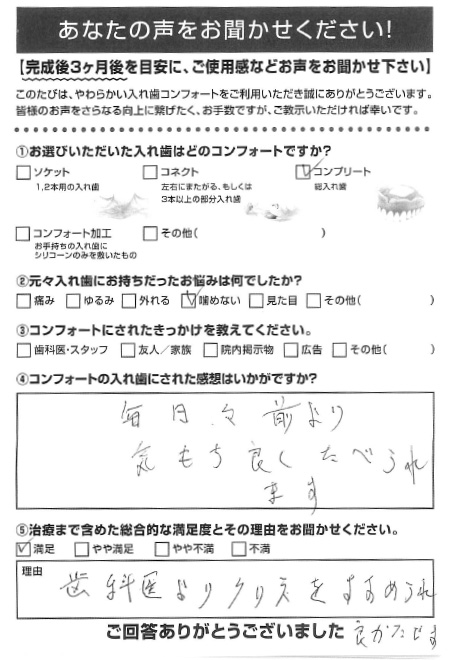 あなたの声をお聞かせください!
【完成後3ヶ月後を目安に、ご使用感などお声をお聞かせ下さい】
このたびは、やわらかい入れ歯コンフォートをご利用いただき誠にありがとうございます。
皆様のお声をさらなる向上に繋げたく、お手数ですが、ご教示いただければ幸いです。
①お選びいただいた入れ歯はどのコンフォートですか?
□ソケット □コネクト ☑コンプリート
1,2本用の入れ歯 左右にまたがる、もしくは 総入れ歯
3本以上の部分入れ歯
□コンフォート加工 □その他( )
お手持ちの入れ歯に
シリコーンのみを敷いたもの
②元々入れ歯にお持ちだったお悩みは何でしたか?
□痛み □ゆるみ □外れる ☑噛めない □見た目 □その他( )
③コンフォートにされたきっかけを教えてください。
□歯科医・スタッフ □友人／家族 □院内掲示物 □広告 □その他( )
④コンフォートの入れ歯にされた感想はいかがですか?
毎日々前より
気もち良くたべられ
ます
⑤治療まで含めた総合的な満足度とその理由をお聞かせください。
☑満足 □やや満足 □やや不満 □不満
理由
歯科医より をすすめられ
ご回答ありがとうございました 良かたです